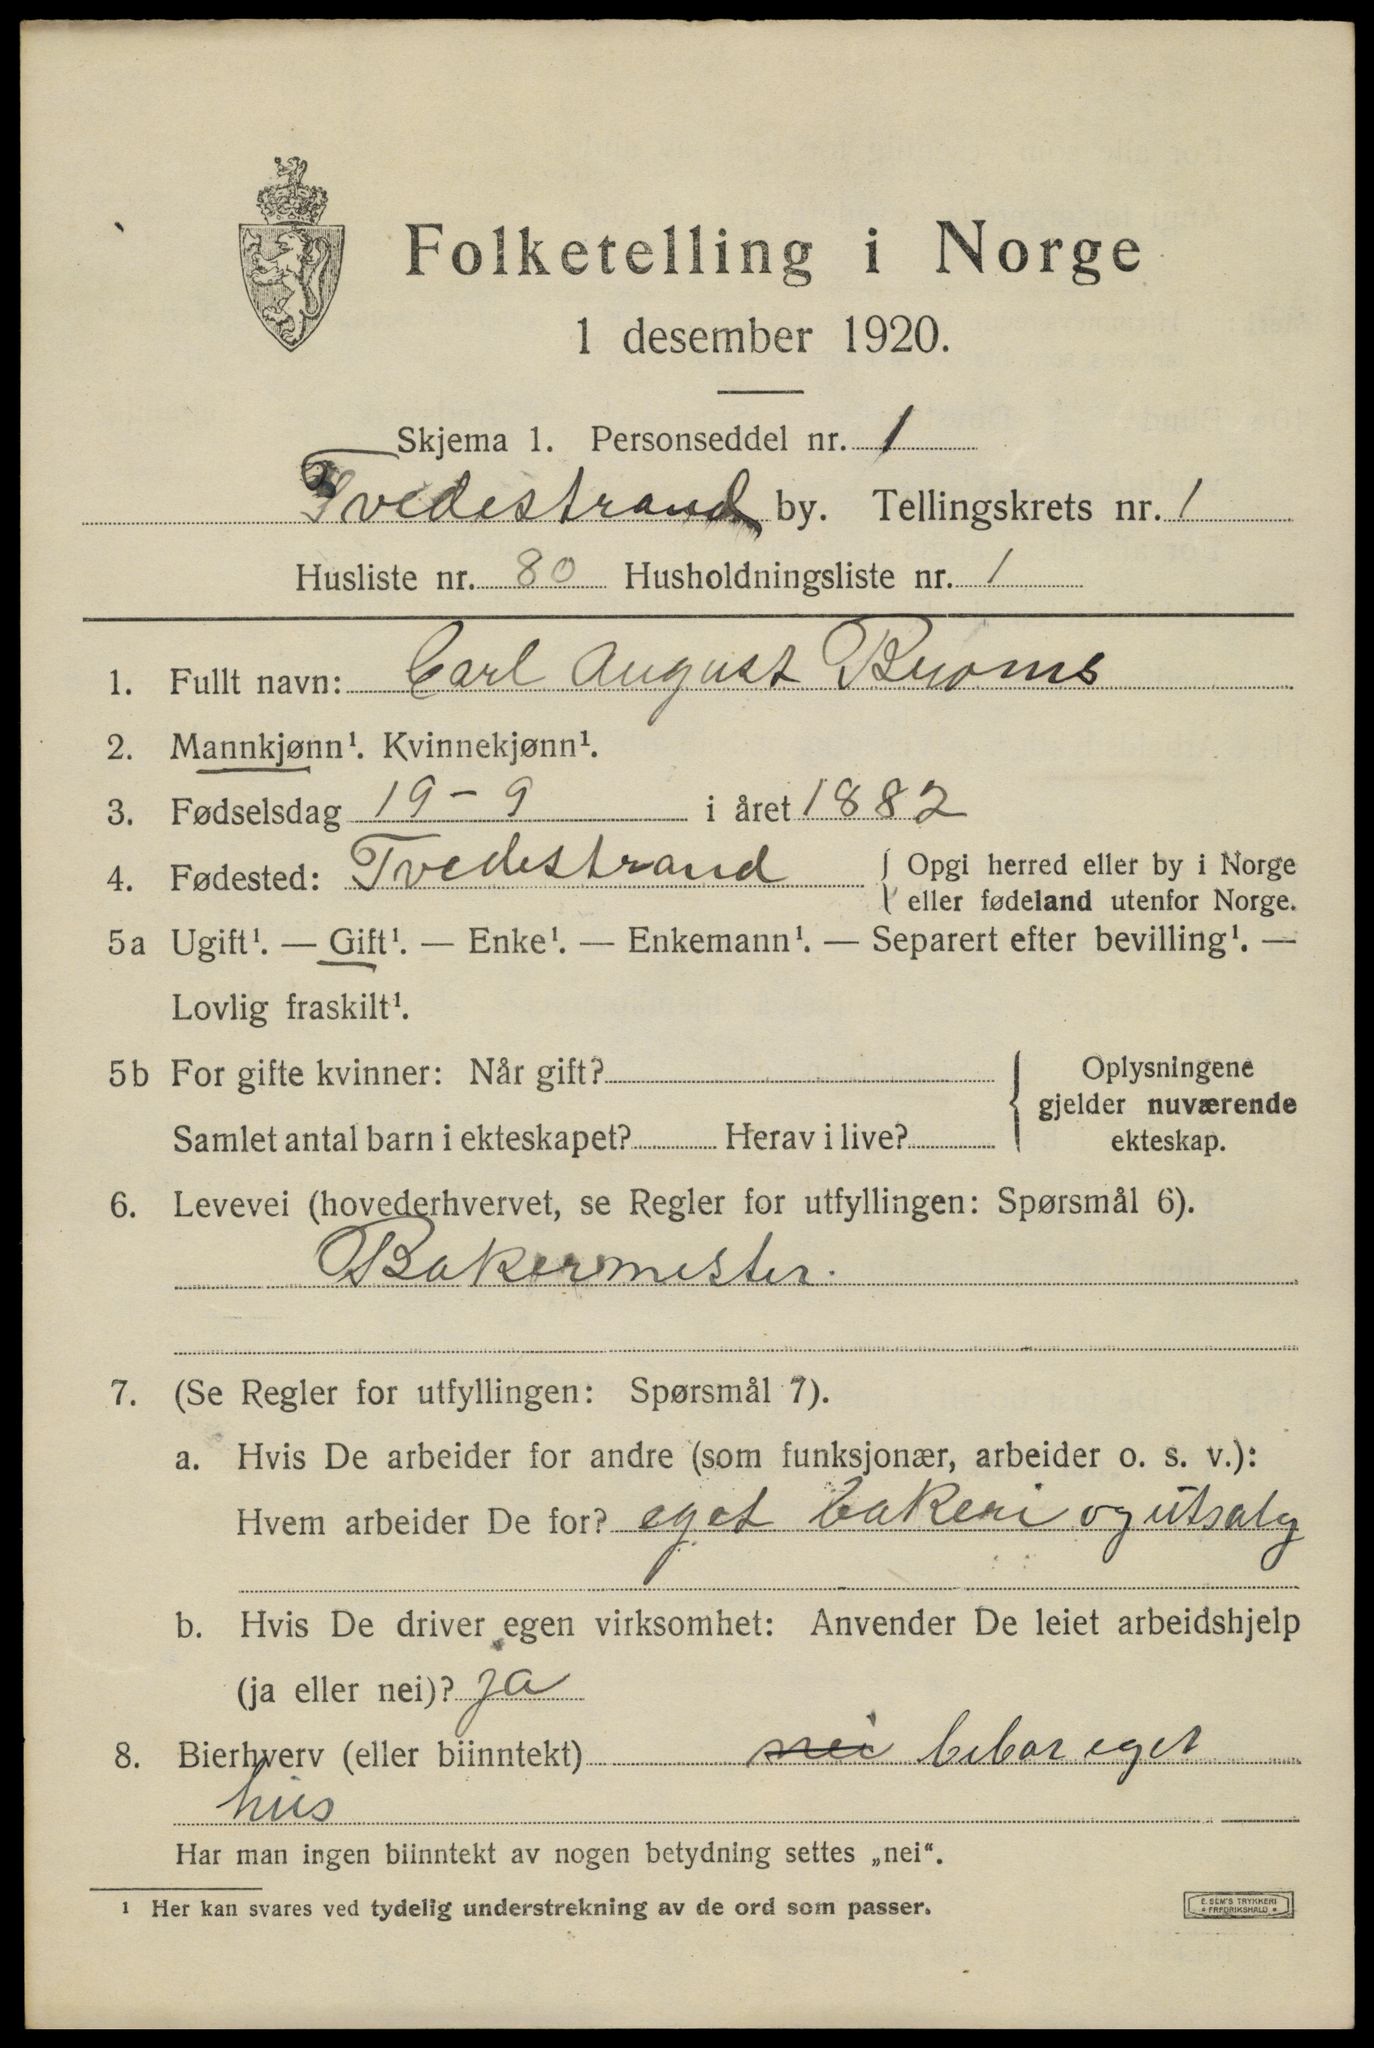 Folketelling i Norge
1 desember 1920.
Skjema 1. Personseddel nr. 1
Tvedestrand by. Tellingskrets nr. 1
Husliste nr. 80 Husholdningsliste nr. 1
1. Fullt navn: Carl August
2. Mannkjønn¹. Kvinnekjønn¹.
3. Fødselsdag 19-9 i året 1882
4. Fødested: Tvedestrand { Opgi herred eller by i Norge
eller fødeland utenfor Norge.
5a Ugift¹. — Gift¹. — Enke¹. — Enkemann¹. — Separert efter bevilling¹. —
Lovlig fraskilt¹.
5b For gifte kvinner: Når gift?
Samlet antal barn i ekteskapet? Herav i live?
Oplysningene
gjelder nuværende
ekteskap.
6. Levevei (hovederhvervet, se Regler for utfyllingen: Spørsmål 6).
Bakermester.
7. (Se Regler for utfyllingen: Spørsmål 7).
a. Hvis De arbeider for andre (som funksjonær, arbeider o. s. v.):
Hvem arbeider De for? eget bakeri og utsalg
b. Hvis De driver egen virksomhet: Anvender De leiet arbeidshjelp
(ja eller nei)? ja
8. Bierhverv (eller biinntekt) nei bebor eget
hus
Har man ingen biinntekt av nogen betydning settes „nei“.
¹ Her kan svares ved tydelig understrekning av de ord som passer.
E. SEM'S TRYKKERI
FREDRIKSHALD